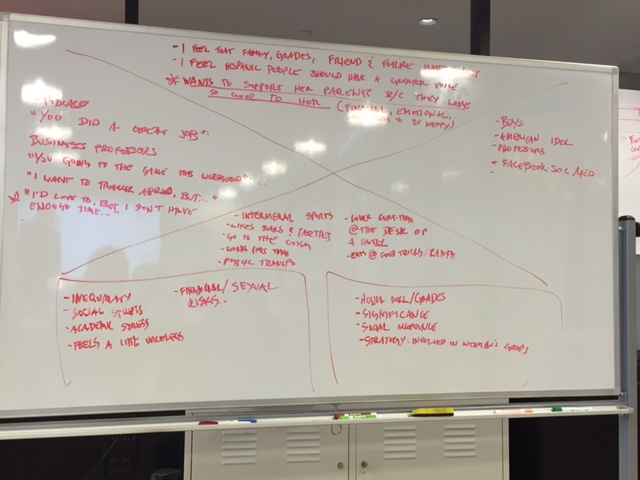 - I FEEL THAT FAMILY, GRADES, FRIEND & FUTURE
- I FEEL HISPANIC PEOPLE SHOULD HAVE A GREATER VOICE
* WANTS TO SUPPORT HER PARENTS B/C THEY WERE
SO GOOD TO HER (FINANCIAL, EMOTIONAL,
- PODCASTS
"YOU DID A GREAT JOB"
BUSINESS PROFESSORS
"YOU GOING TO THE GAME THIS WEEKEND"
"I WANT TO TRAVEL ABROAD, BUT..."
* "I'D LOVE TO, BUT I DON'T HAVE
ENOUGH TIME...
- BOYS
- AMERICAN IDOL
- PROFESSORS
+ FACEBOOK: SOC. MED
- INTERMURAL SPORTS
- LIKES BARS & PARTIES
- GO TO THE GYM
- WORK PART TIME
- PUBLIC TRANSPO
- WORK PART-TIME
@ THE DESK OF
A HOTEL
- EATS @ FOOD TRUCKS/
- INEQUALITY
- SOCIAL STRESS
- ACADEMIC STRESS
- FEELS A LITTLE
- FINANCIAL/SEXUAL
RISKS..
- HONOR ROLL/GRADES
- SIGNIFICANCE
- SOCIAL ACCEPTANCE
- STRATEGY: INVOLVED IN WOMEN'S GROUPS